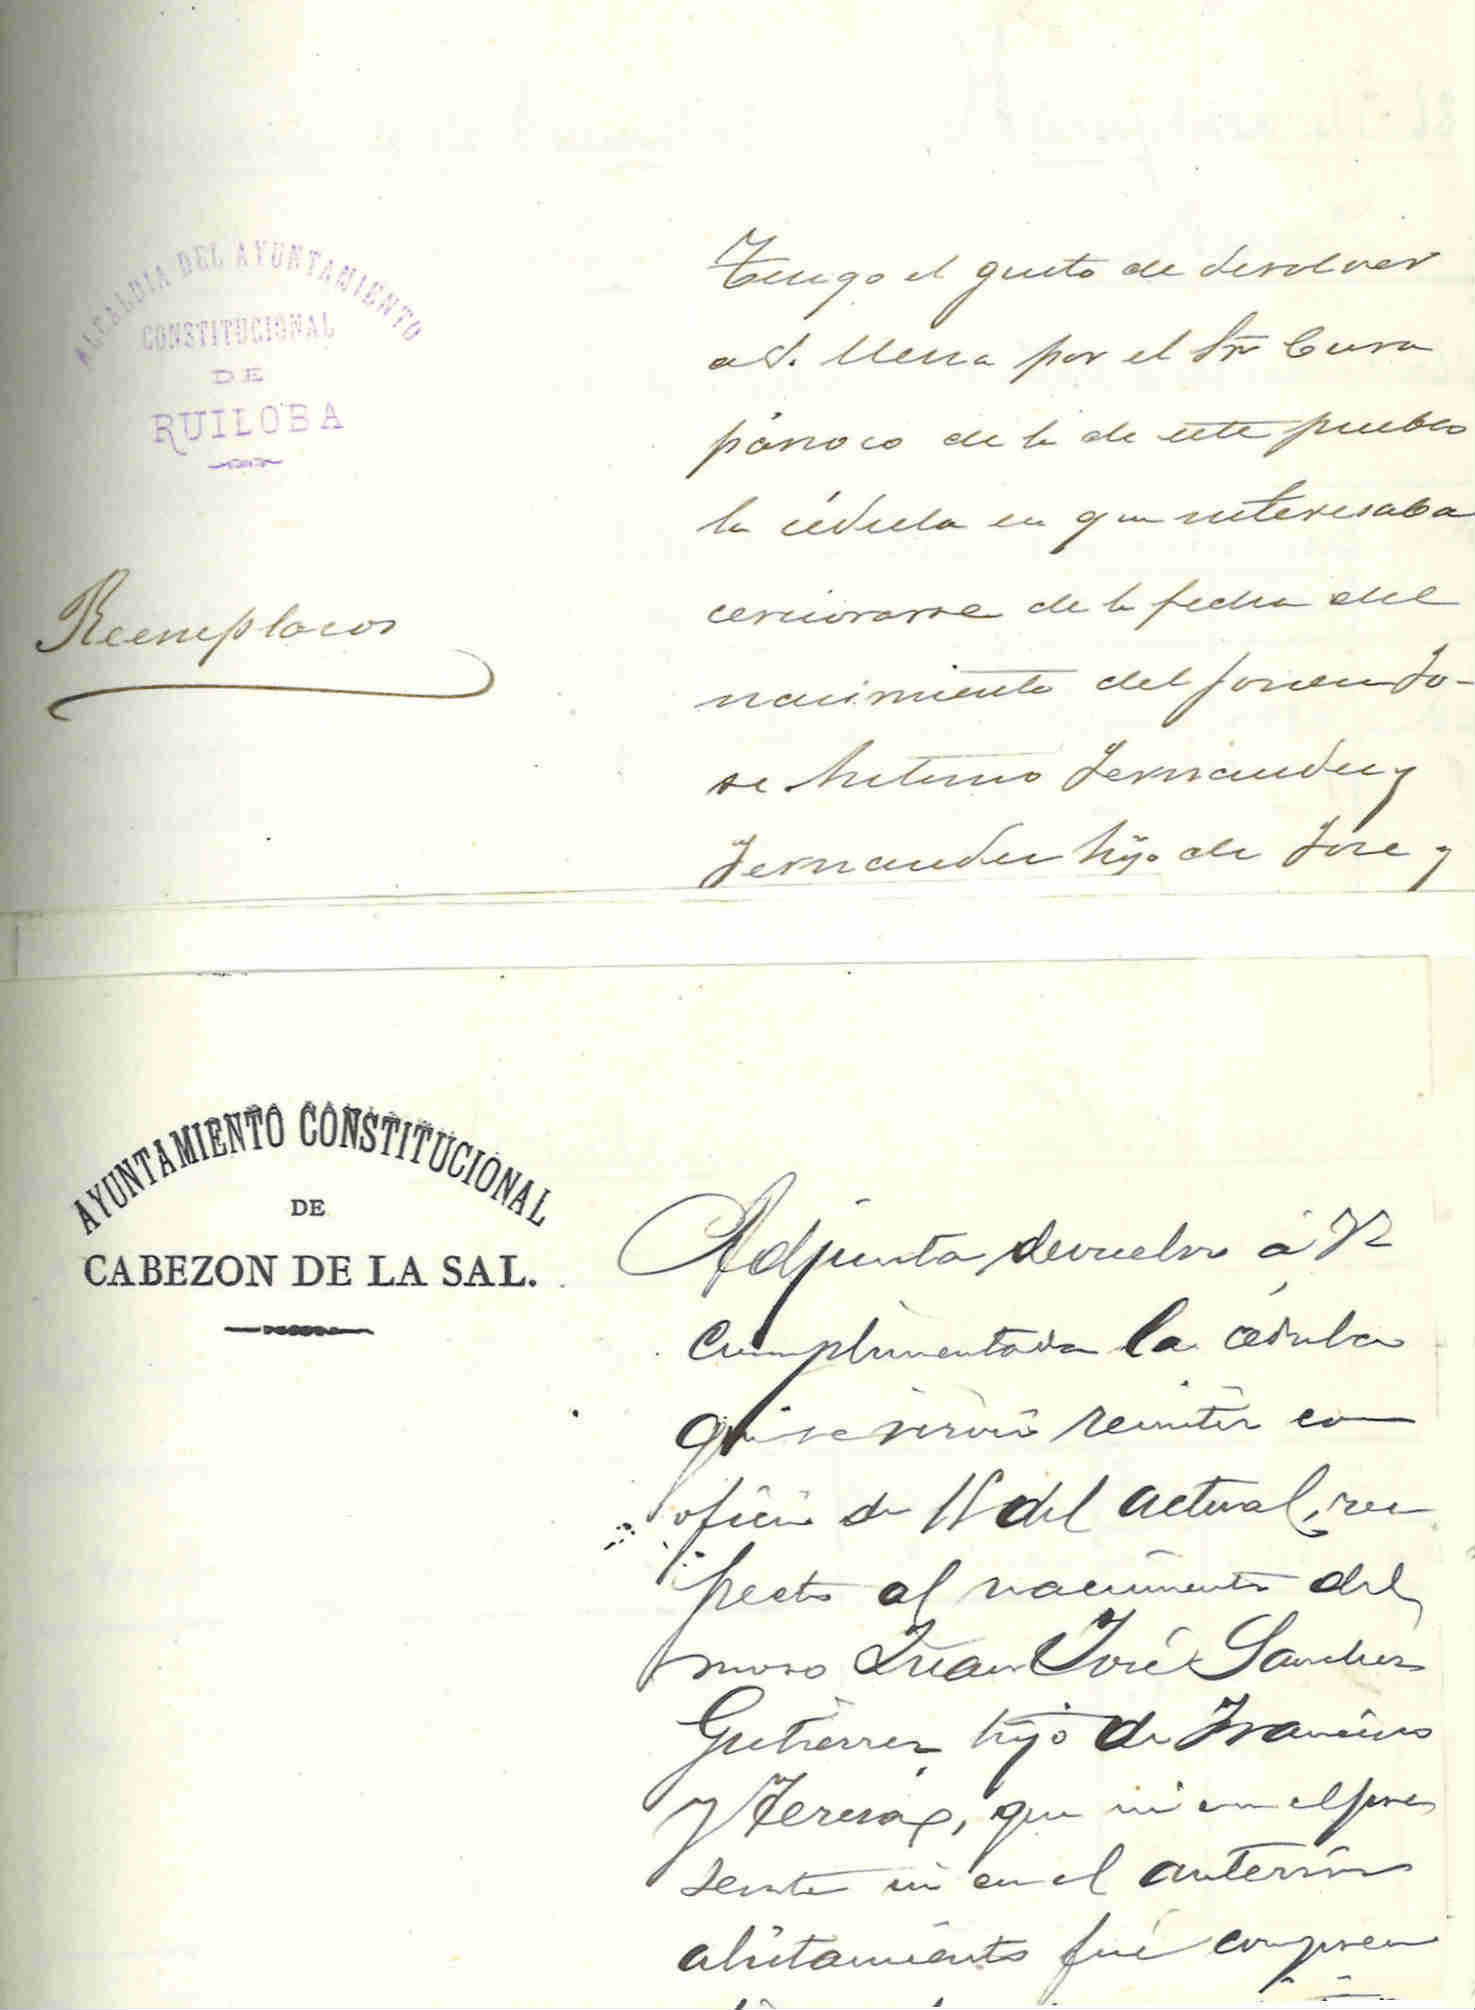 ALCALDIA DEL AYUNTAMIENTO
CONSTITUCIONAL
DE
RUILOBA
Reemplazos
Tengo el gusto de devolver
a V. llena por el Sr Cura
párroco de la de este pueblo
la cédula en que interesaba
cerciorarse de la fecha del
nacimiento del joven Jo-
se Antonio Fernandez y
Fernandez hijo de Jose y
AYUNTAMIENTO CONSTITUCIONAL
DE
CABEZON DE LA SAL.
Adjunta devuelvo á V
cumplimentada la cédula
que se sirvió remitir con
oficio de del actual, res
pecto al nacimiento del
mozo Juan José Sanchez
Gutierrez hijo de Francisco
y Teresa, que ni en el pre
sente ni en el anterior
alistamiento fué compren